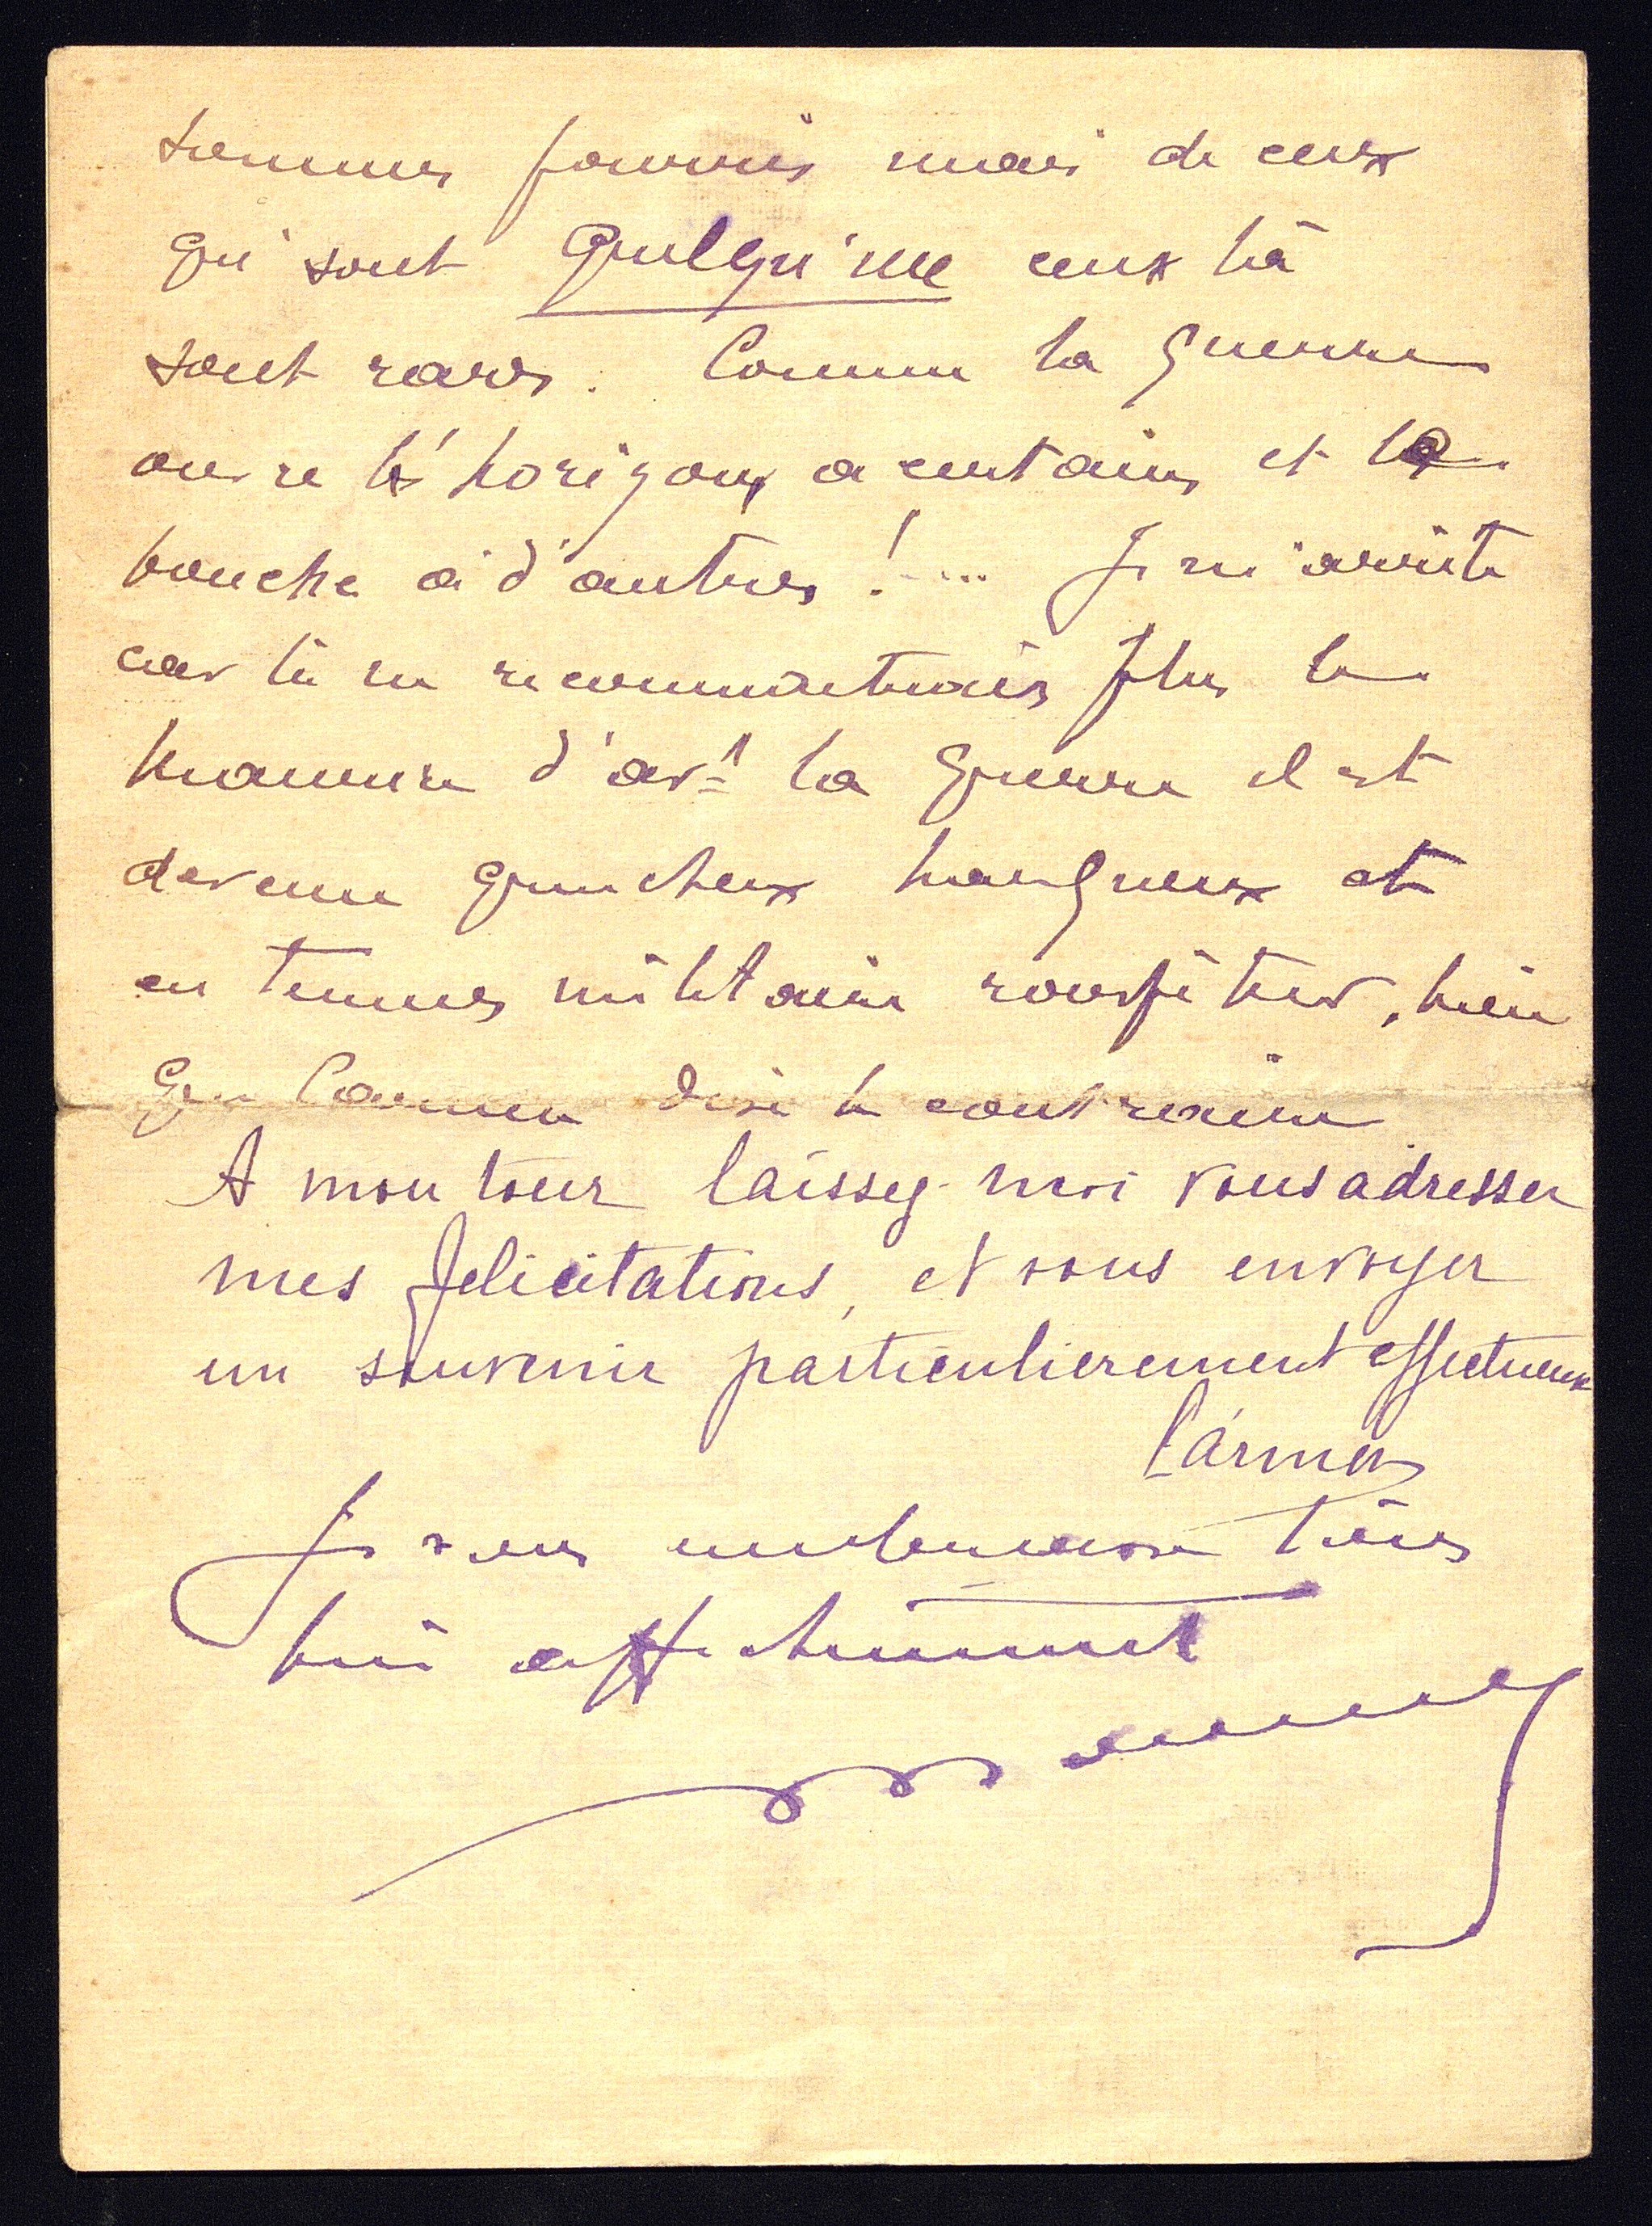 sommes fournis mais de ceux
qui sont quelqu'un ceux là
sont rares. Comme la guerre
ouvre l'horizon a certains et le
bouche à d'autres !.... Je m'arrête
car tu ne reconnaitrais plus le
d'avt la guerre il est
devenu grincheux hargneux et
en termes militaire rouspéteur, bien
que Carmen dise le contraire
A mon tour laissez-moi vous adresser
mes félicitations, et vous envoyer
un souvenir particulierement affectueux
Carmen
Je vous embrasse tous
bien affectueusement